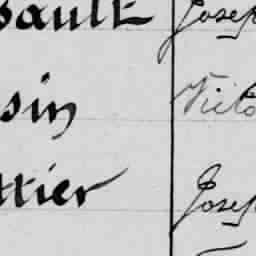 sault Josep
sin Victo
ttier Josep